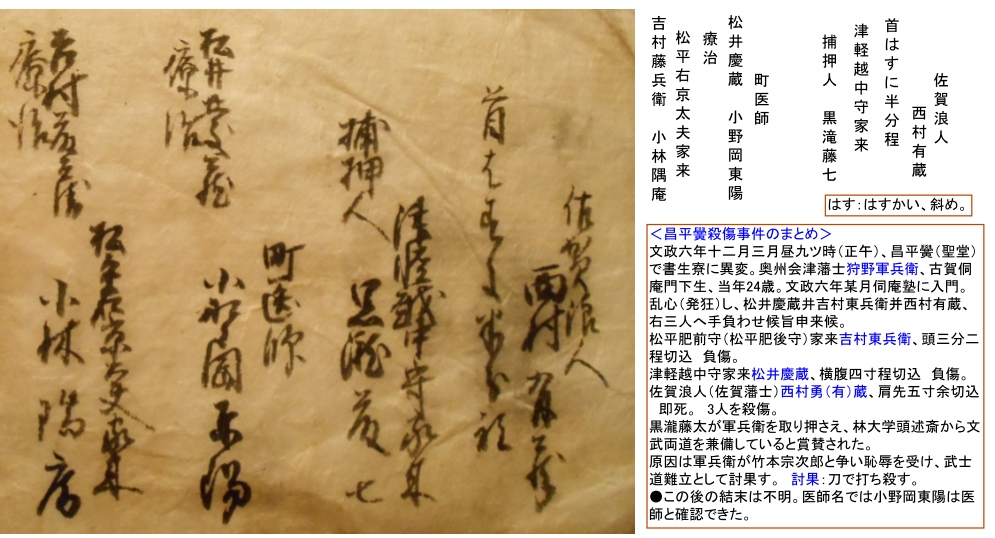 佐賀浪人
西村有蔵
首はすに半分程
津軽越中守家来
捕押人 黒瀧藤七
町医師
松井慶蔵 小野岡東陽
療治
松平右京太夫家来
吉村藤兵衛 小林隅庵
療治
佐賀浪人
西村有蔵
首はすに半分程
津軽越中守家来
捕押人 黒滝藤七
町医師
松井慶蔵 小野岡東陽
療治
松平右京太夫家来
吉村藤兵衛 小林隅庵
はす:はすかい、斜め。
<昌平黌殺傷事件のまとめ>
文政六年十二月三月昼九ツ時(正午)、昌平黌(聖堂)
で書生寮に異変。奥州会津藩士狩野軍兵衛、古賀侗
庵門下生、当年24歳。文政六年某月侗庵塾に入門。
乱心(発狂)し、松井慶蔵井吉村東兵衛并西村有蔵、
右三人へ手負わせ候旨申来候。
松平肥前守(松平肥後守)家来吉村東兵衛、頭三分二
程切込 負傷。
津軽越中守家来松井慶蔵、横腹四寸程切込 負傷。
佐賀浪人(佐賀藩士)西村勇(有)蔵、肩先五寸余切込
即死。 3人を殺傷。
黒瀧藤太が軍兵衛を取り押さえ、林大学頭述斎から文
武両道を兼備していると賞賛された。
原因は軍兵衛が竹本宗次郎と争い恥辱を受け、武士
道難立として討果す。 討果:刀で打ち殺す。
●この後の結末は不明。医師名では小野岡東陽は医
師と確認できた。